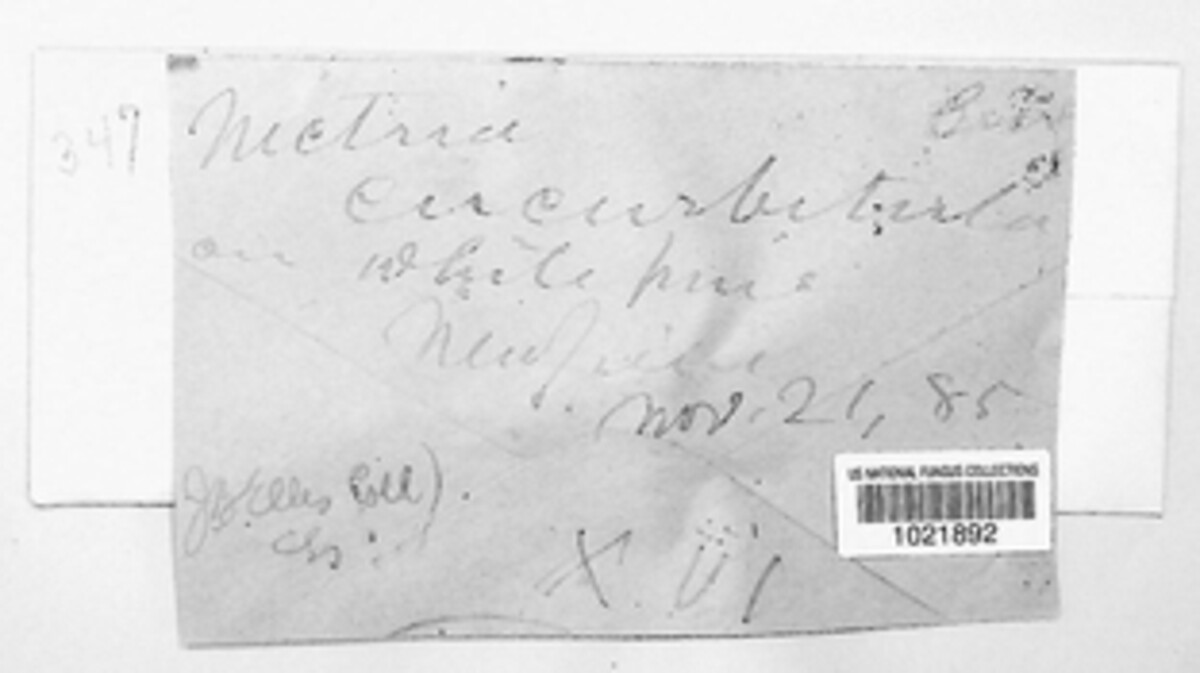 347
Nectria
cucurbitula
on white pine
Newfield
Nov. 21, 85
JB Ellis Coll).
X VI
US NATIONAL FUNGUS COLLECTIONS
1021892